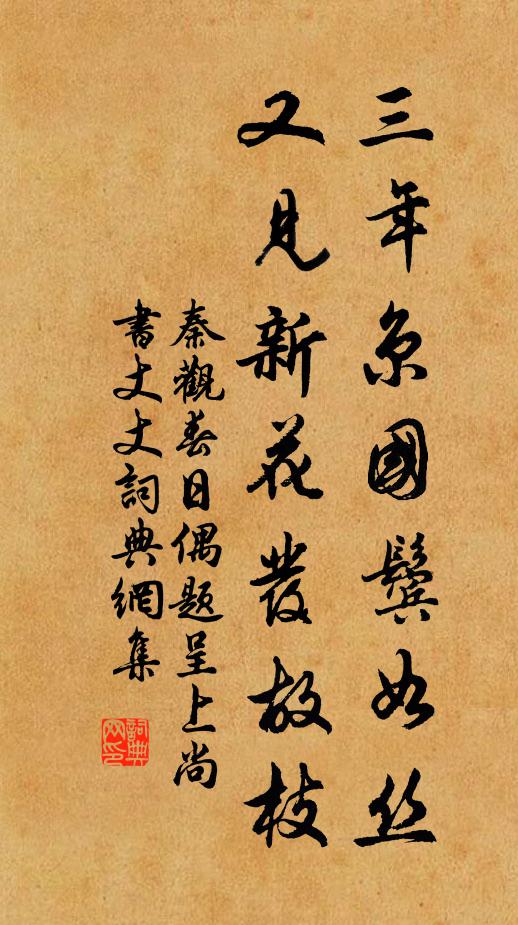 三年京國鬓如丝
又見新花發故枝
秦觀春日偶题呈上尚
書丈丈詞典網集
詞典
网印